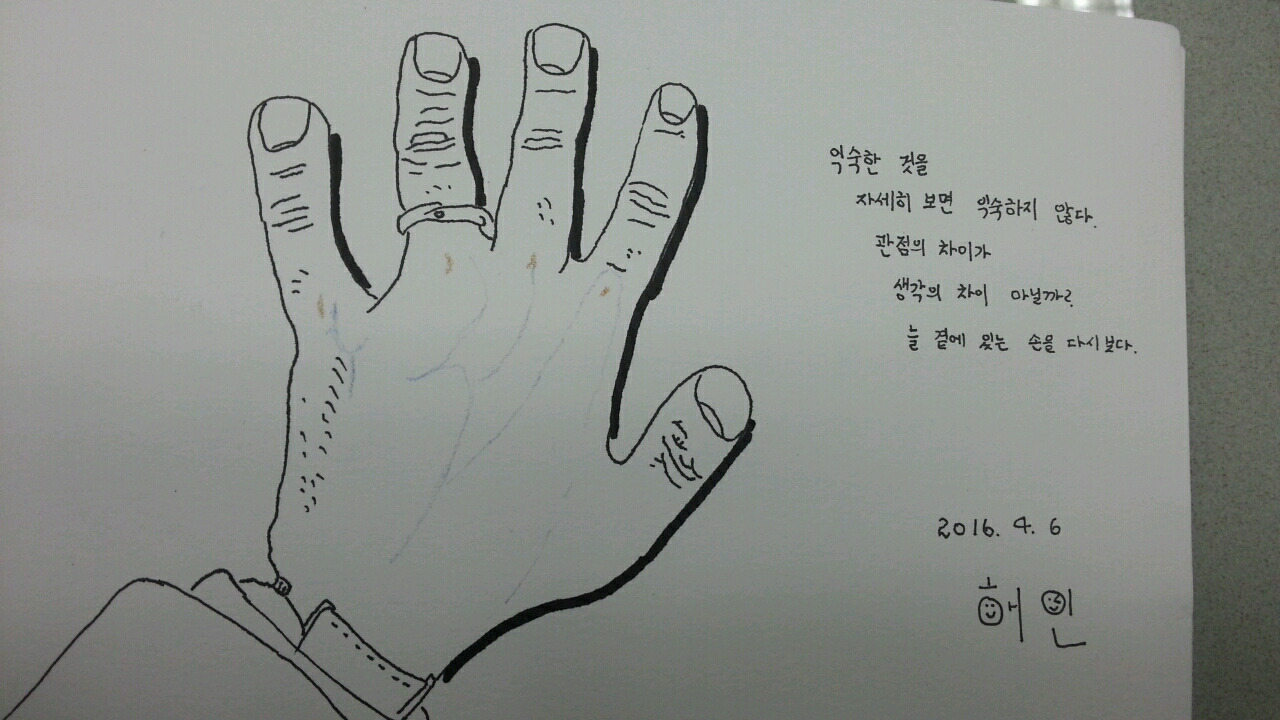 익숙한 것을
자세히 보면 익숙하지 않다.
관점의 차이가
생각의 차이 아닐까?
늘 곁에 있는 손을 다시보다.
2016. 4. 6
해인